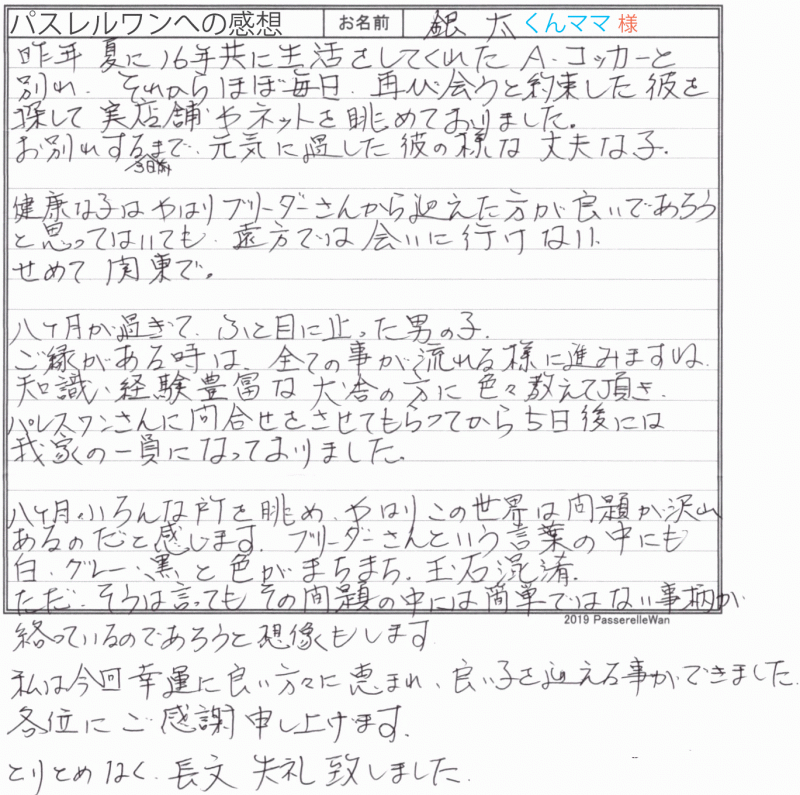 パスレルワンへの感想 お名前 銀太くんママ 様
昨年夏に16年共に生活をしてくれたA.コッカーと
別れ、それからほぼ毎日、再び会うと約束した彼を
探して実店舗やネットを眺めておりました。
お別れするまで、元気に過した彼の様な丈夫な子。
健康な子はやはりブリーダーさんから迎えた方が良いであろう
と思ってはいても、遠方では会いに行けない、
せめて関東で。
八ヶ月が過ぎて、ふと目に止った男の子。
ご縁がある時は、全ての事が流れる様に進みますね。
知識、経験豊富な犬舎の方に色々教えて頂き、
パレスワンさんに問合せをさせてもらってから5日後には
我家の一員になっておりました。
八ヶ月、いろんな所を眺め、やはりこの世界は問題が沢山
あるのだと感じます。ブリーダーさんという言葉の中にも
白、グレー、黒と色がまちまち。玉石混淆。
ただ、そうは言ってもその問題の中には簡単ではない事柄が
2019 PasserelleWan
絡っているのであろうと想像もします。
私は今回幸運に良い方々に恵まれ、良い子を迎える事ができました。
各位にご感謝申し上げます。
とりとめなく、長文失礼致しました。